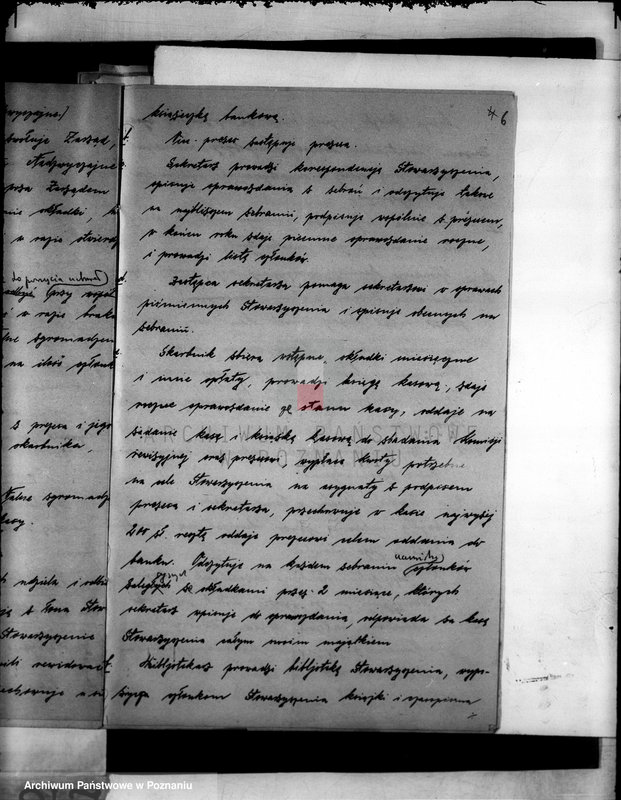 książeczkę bankową.
6
Vice-prezes zastępuje prezesa.
Sekretarz prowadzi korespondencję Stowarzyszenia,
spisuje sprawozdania z zebrań i odczytuje takowe
na najbliższem zebraniu, podpisuje wspólnie z prezesem,
w końcu roku zdaje pisemne sprawozdanie roczne,
i prowadzi listę członków.
Zastępca sekretarza pomaga sekretarzowi w sprawach
piśmiennych Stowarzyszenia i spisuje obecnych na
zebraniu.
Skarbnik zbiera wstępne, składki miesięczne
i inne opłaty, prowadzi księgę kasową, zdaje
roczne sprawozdanie ze stanu kasy, oddaje na
żądanie kasę i książkę kasową do zbadania Komisji
rewizyjnej oraz prezesowi, wypłaca kwoty potrzebne
na cele Stowarzyszenia na asygnaty z podpisem
prezesa i sekretarza, przechowuje w kasie najwyżej
200 zł. resztę oddaje prezesowi celem oddania do
banku. Odczytuje na każdem zebraniu członków
ze składkami przez 2 miesiące, których
sekretarz spisuje do sprawozdania, odpowiada za kasę
Stowarzyszenia całym swoim majątkiem
Bibljotekarz prowadzi bibljotekę Stowarzyszenia, wypo-
życza członkom Stowarzyszenia książki i czasopisma
zwołuje Zarząd,
Nadzwyczajne
przez Zarządem
składki,
w razie
do powzięcia uchwał)
w razie braku
zgromadzen
na ilość członk
z prezesa i jego
skarbnika,
Walne zgromadz
kasy.
udziela i robi
z łona Stow
Stowarzyszenie
ARCHIWUM PAŃSTWOWE
W POZNANIU
Archiwum Państwowe w Poznaniu